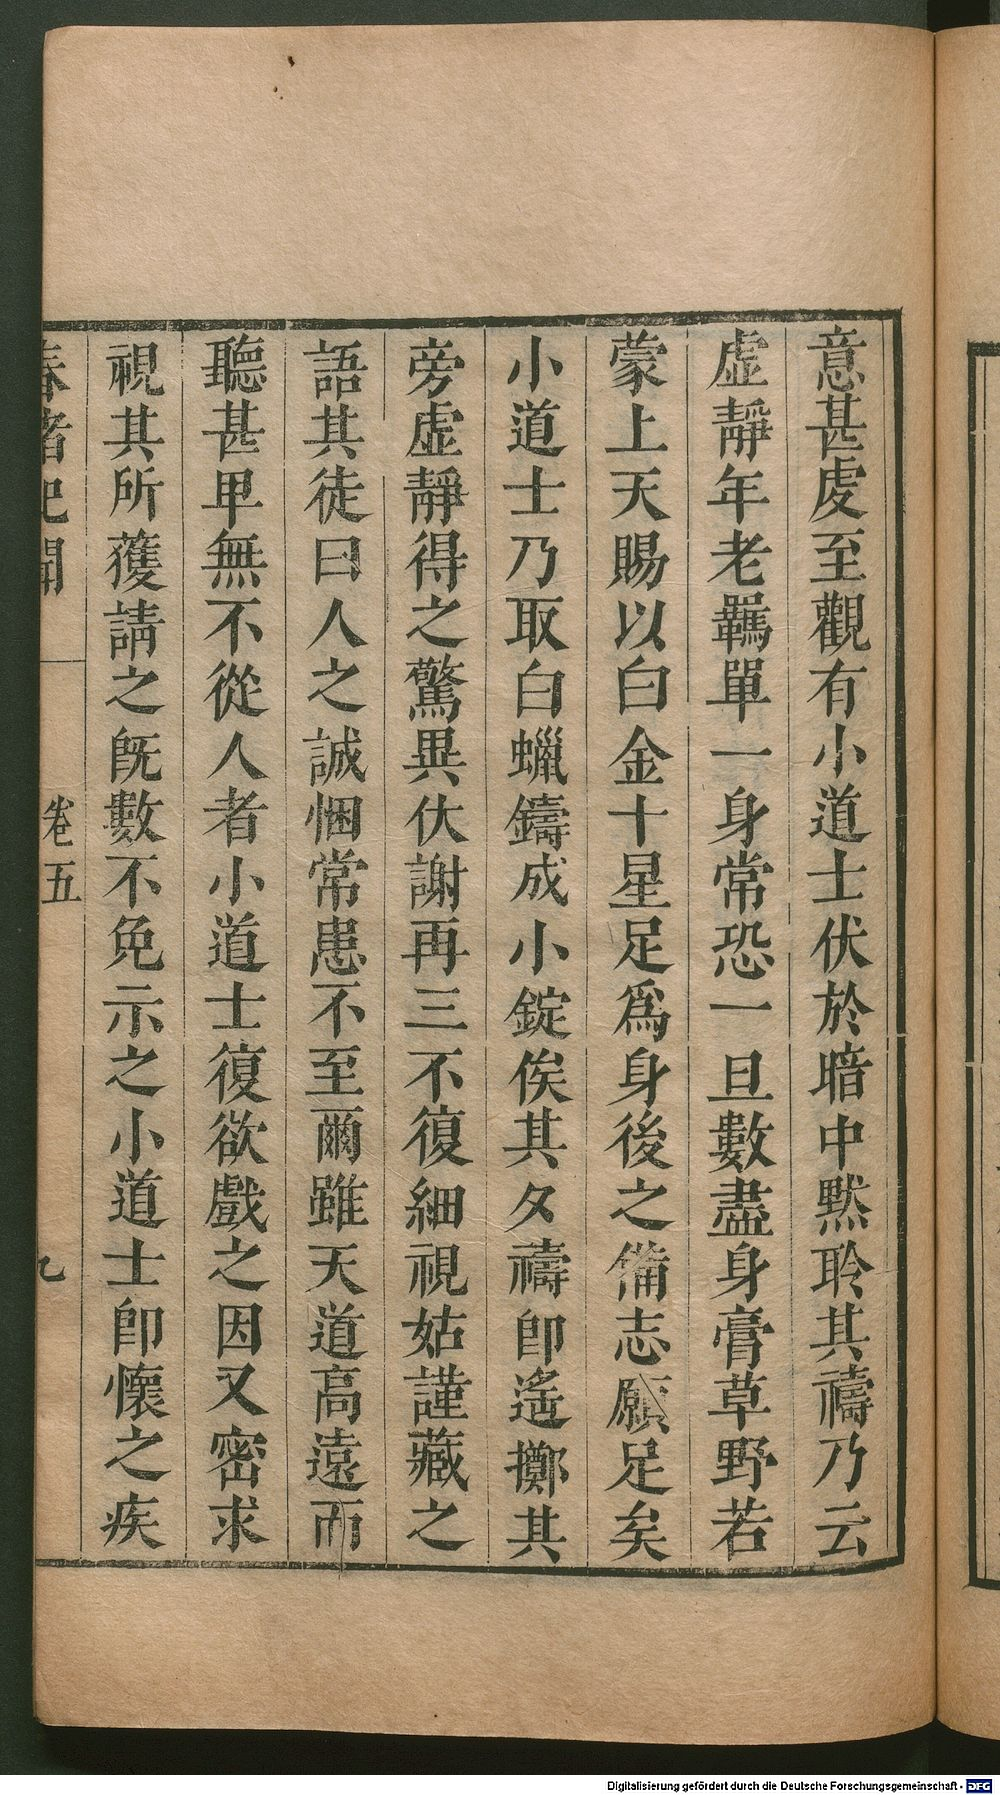 意甚虔至觀有小道士伏於暗中黙聆其禱乃云
虛靜年老羈單一身常恐一旦數盡身膏草野若
蒙上天賜以白金十星足爲身後之備志願足矣
小道士乃取白蠟鑄成小錠俟其夕禱卽遙擲其
旁虛靜得之驚異伏謝再三不復細視姑謹藏之
語其徒曰人之誠悃常患不至爾雖天道高遠而
聽甚卑無不從人者小道士復欲戲之因又密求
視其所獲請之旣數不免示之小道士卽懷之疾
春渚紀聞 卷五 七
Digitalisierung gefördert durch die Deutsche Forschungsgemeinschaft - DFG